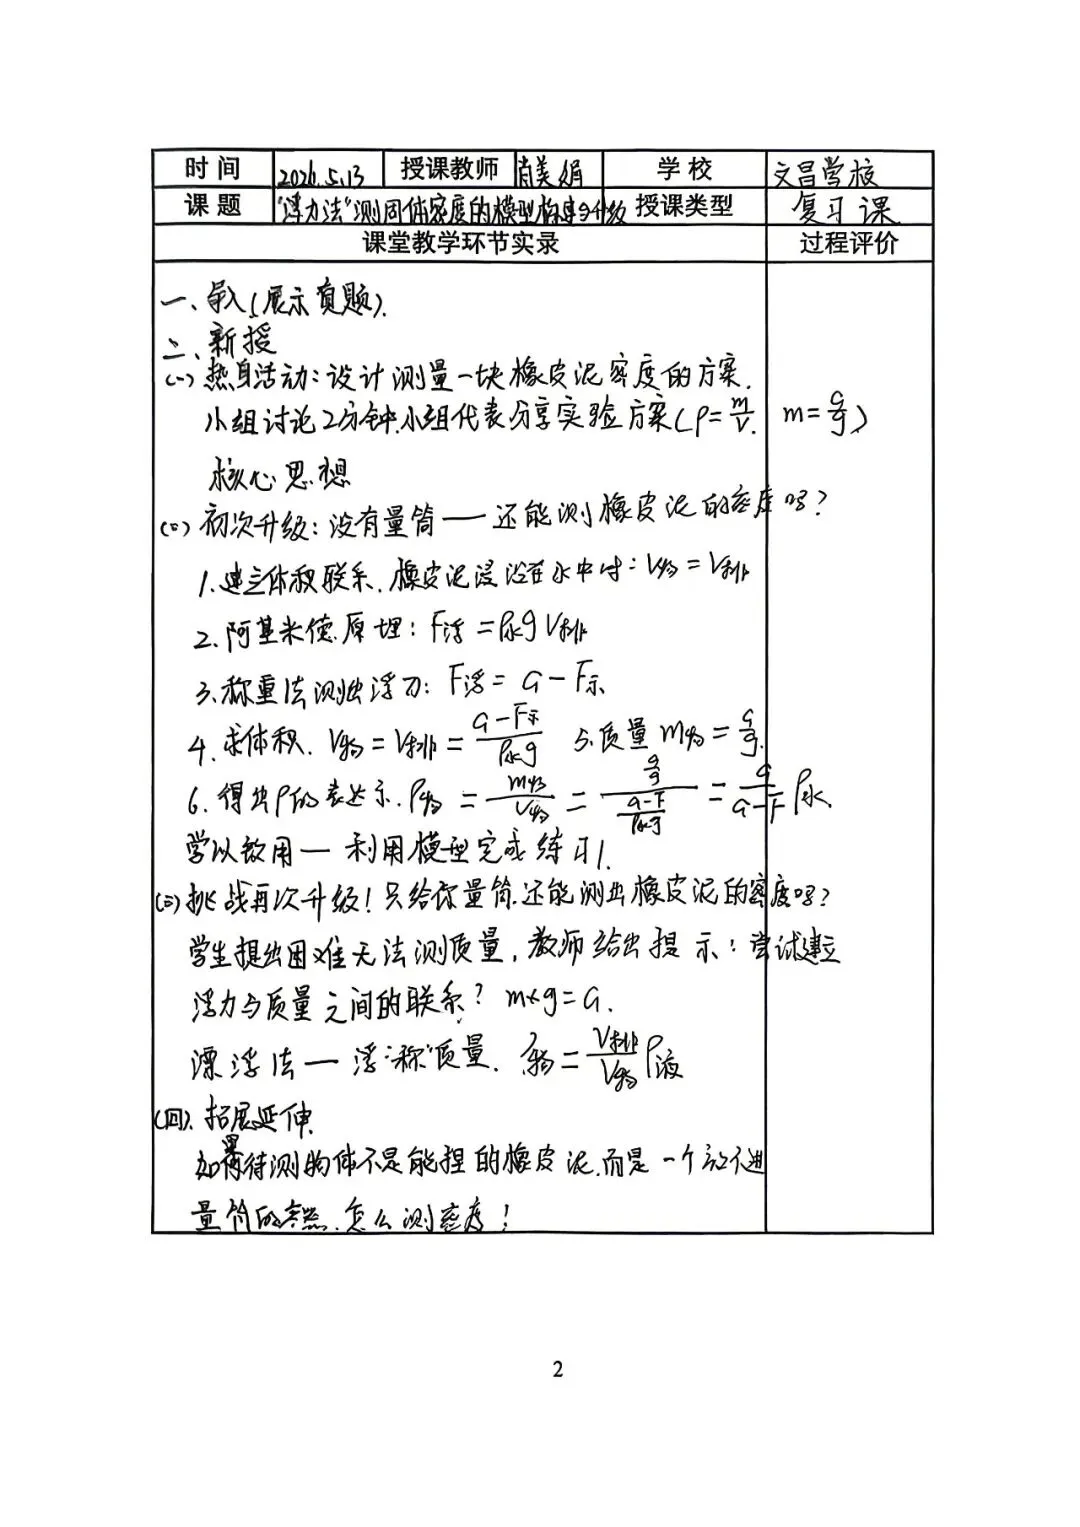 时间 2026.5.13 授课教师 肖美娟 学校 文昌学校
课题 "浮力法"测固体密度的模型构建与升级 授课类型 复习课
课堂教学环节实录 过程评价
一、导入(展示真题).
二、新授
(一)热身活动:设计测量一块橡皮泥密度的方案.
小组讨论2分钟.小组代表分享实验方案(ρ=m/V. m=G/g)
核心思想
(二)初次升级:没有量筒——还能测橡皮泥的密度吗?
1.建立体积联系.橡皮泥浸没在水中时:V物=V排
2.阿基米德原理:F浮=ρ水gV排
3.称重法测出浮力:F浮=G-F示
4.求体积.V物=V排=(G-F示)/(ρ水g) 5.质量m物=G/g.
6.得出ρ的表达示.ρ物=m物/V物=(G/g)/((G-F)/(ρ水g))=G/(G-F)ρ水.
学以致用—利用模型完成练习1.
(三)挑战再次升级!只给你量筒.还能测出橡皮泥的密度吗?
学生提出困难无法测质量,教师给出提示:尝试建立
浮力与质量之间的联系?m×g=G.
漂浮法—浮"称"质量.ρ物=V排/V物ρ液
(四).拓展延伸.
如果待测物体不是能捏的橡皮泥.而是一个放不进
量筒的.怎么测密度!
2